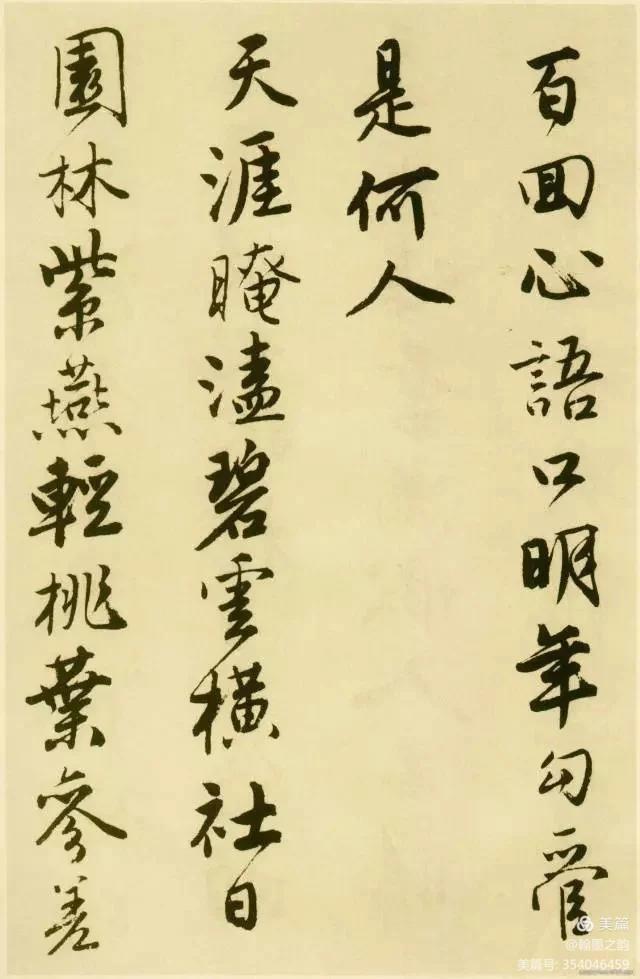 百回心語口明年勾管
是何人
天涯晻溘碧雲橫社日
園林紫燕輕桃葉參差
美篇
@翰墨之韵
美篇号: 354046459